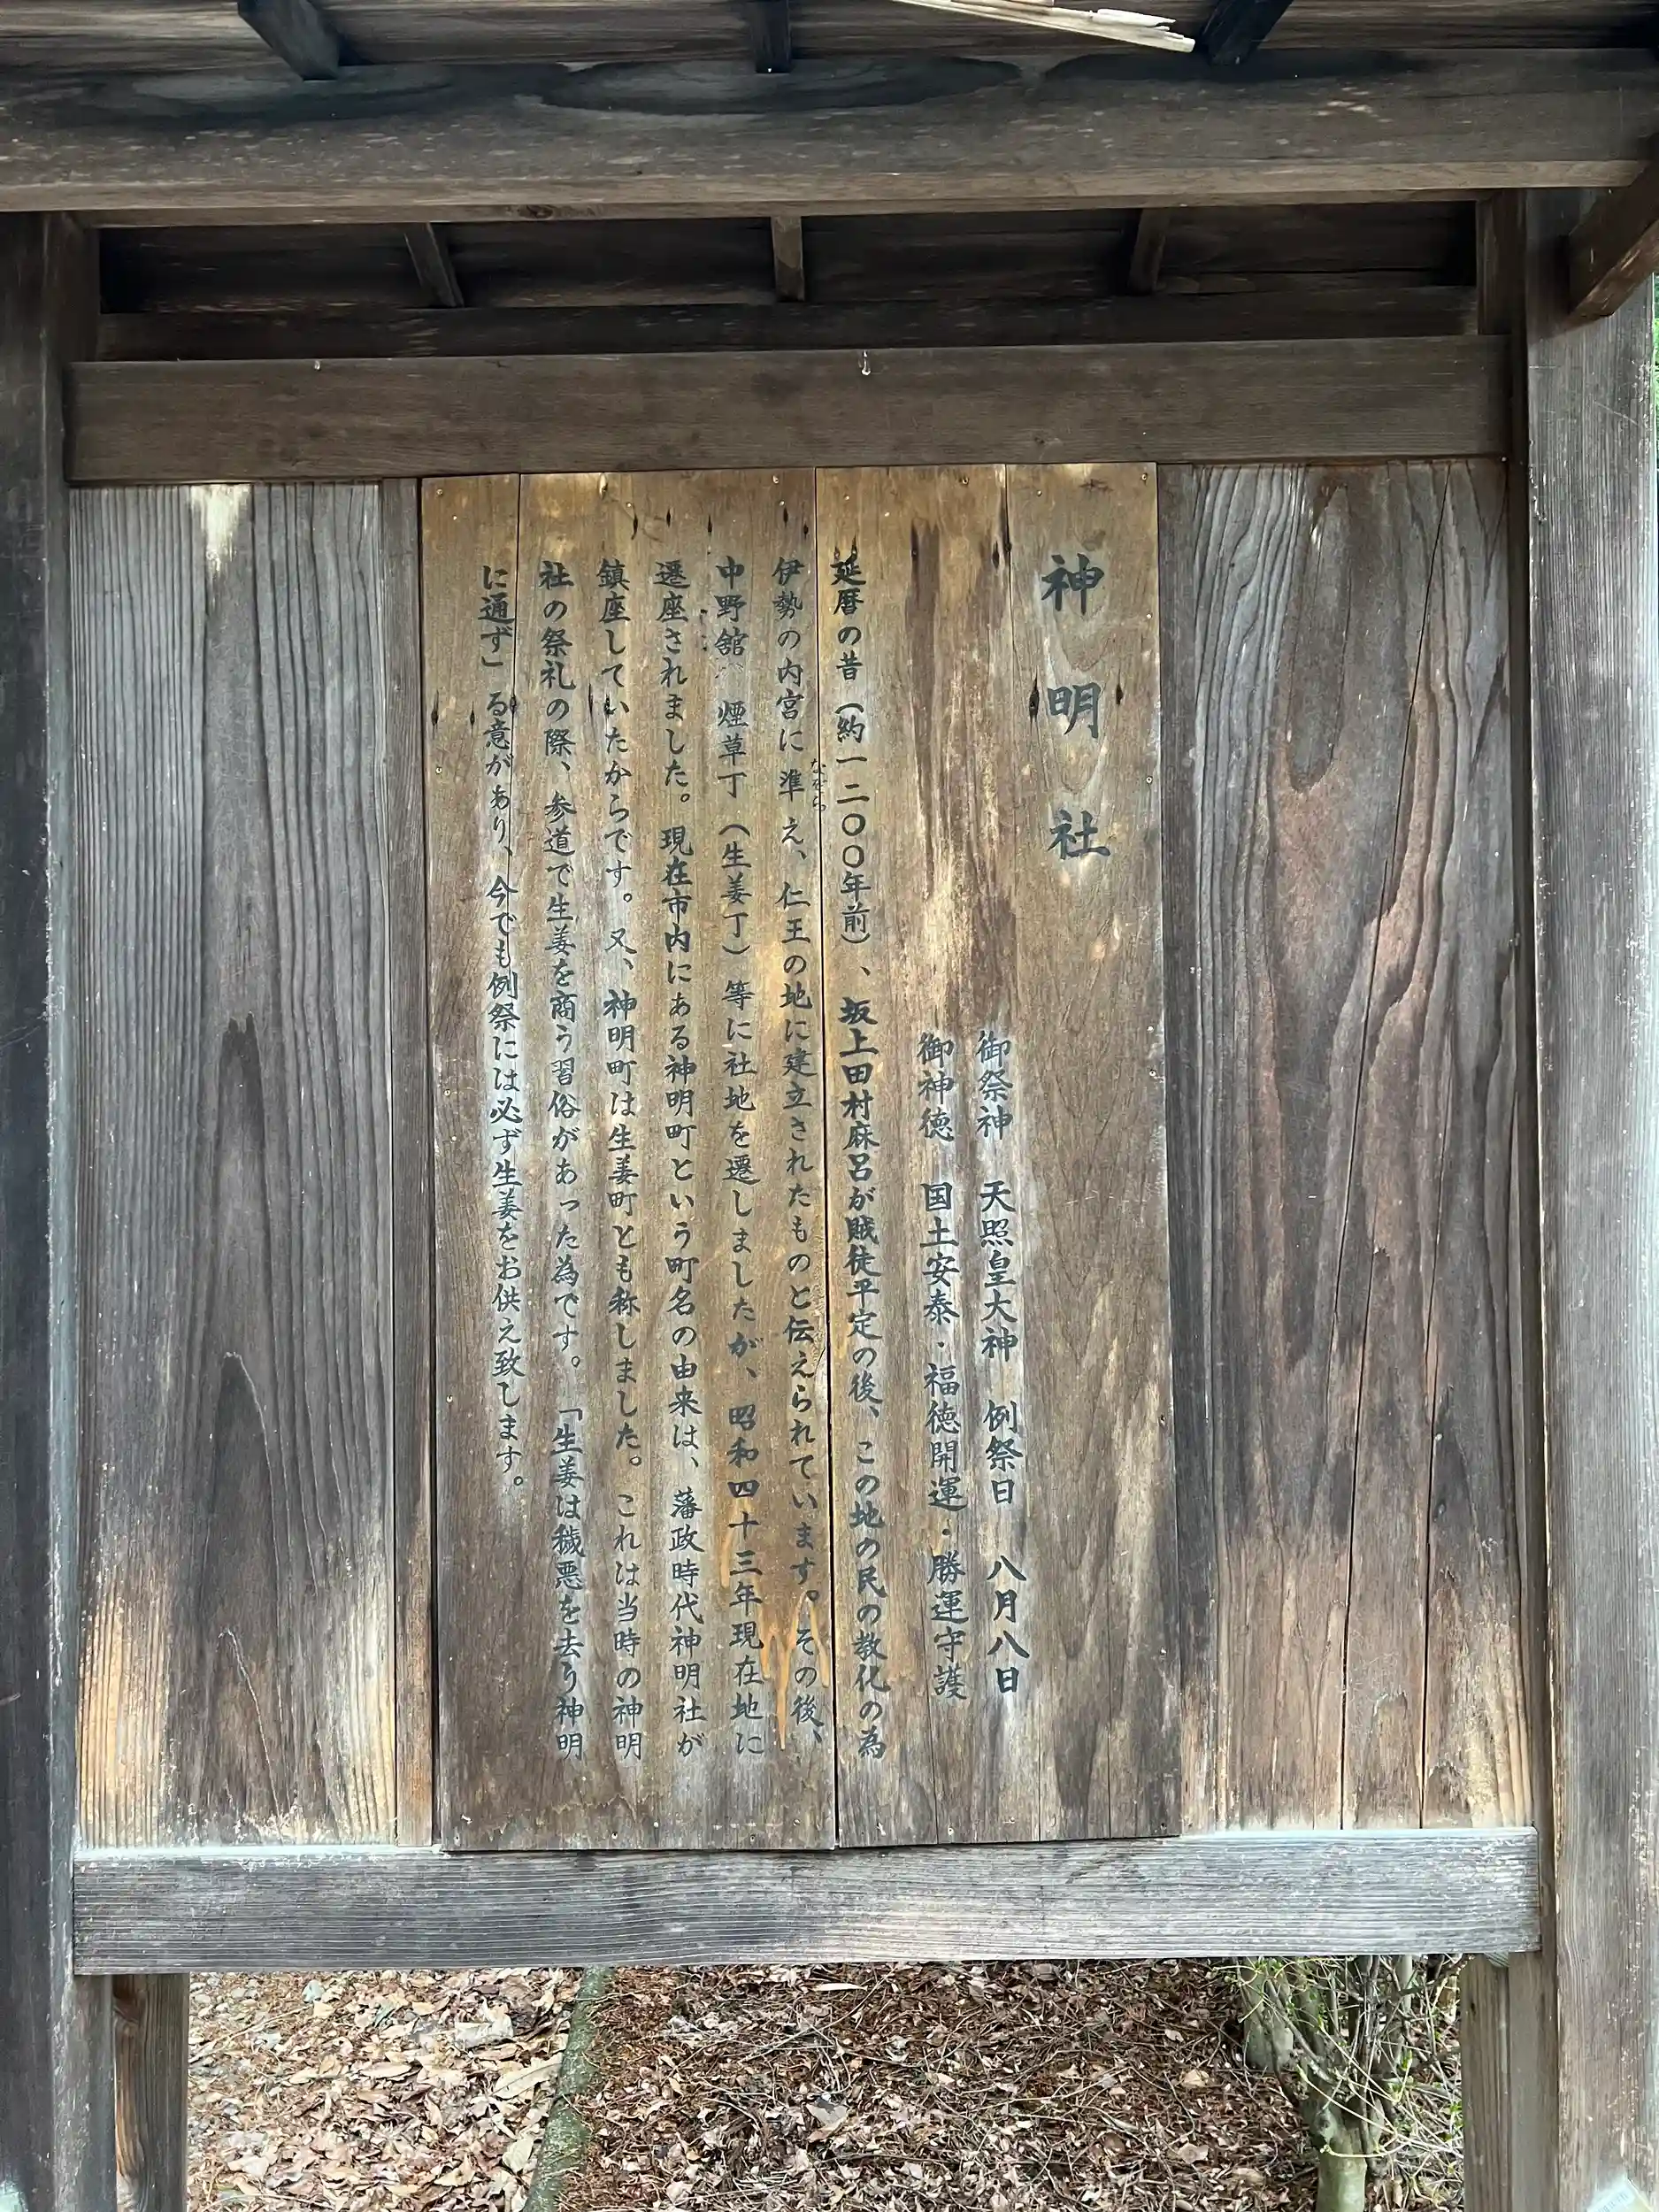 神明社
御祭神　天照皇大神　例祭日　八月八日
御神徳　国土安泰・福徳開運・勝運守護
延暦の昔（約一二〇〇年前）、坂上田村麻呂が賊徒平定の後、この地の民の教化の為
伊勢の内宮に準え、仁王の地に建立されたものと伝えられています。その後、
なぞら
中野舘　煙草丁（生姜丁）等に社地を遷しましたが、昭和四十三年現在地に
遷座されました。現在市内にある神明町という町名の由来は、藩政時代神明社が
鎮座していたからです。又、神明町は生姜町とも称しました。これは当時の神明
社の祭礼の際、参道で生姜を商う習俗があった為です。「生姜は穢悪を去う神明
に通ず」る意があり、今でも例祭には必ず生姜をお供え致します。